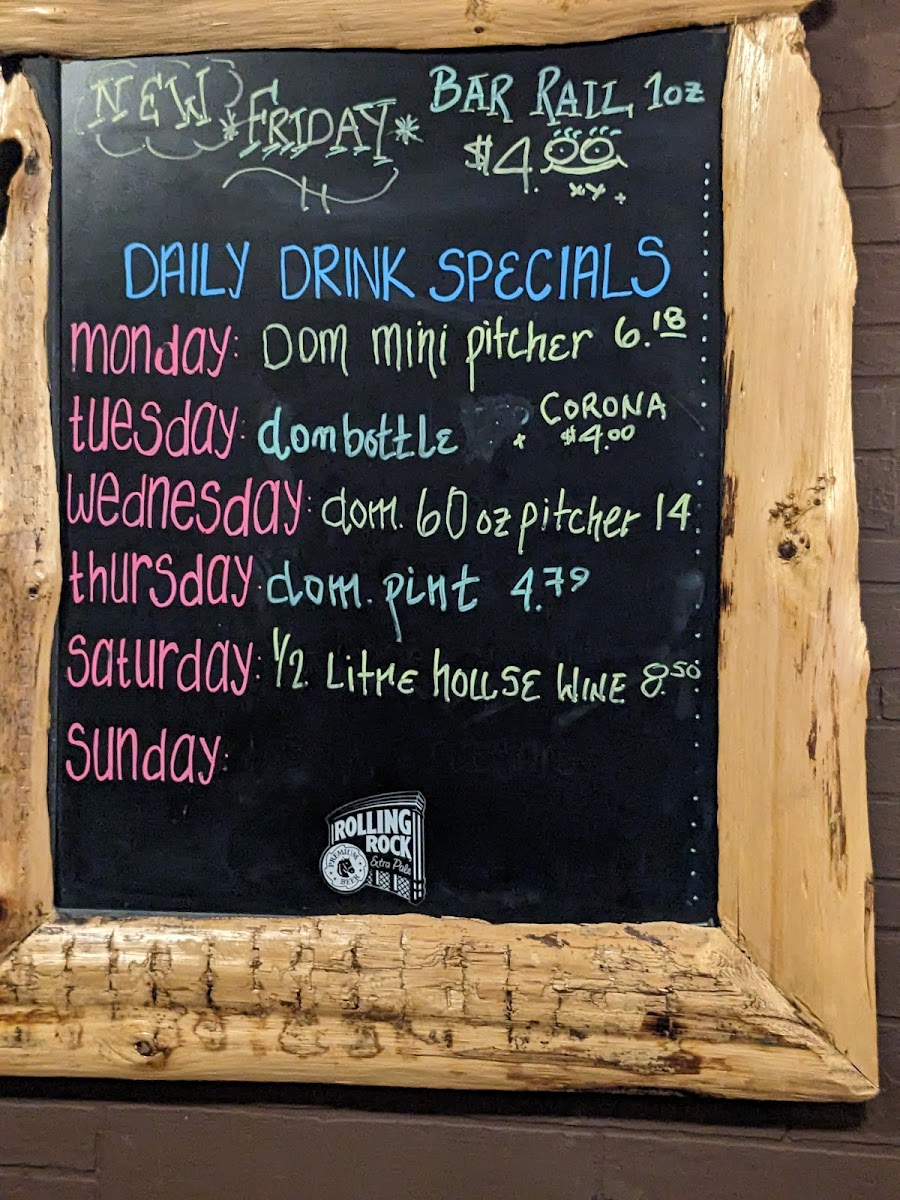 NEW
*FRIDAY*
BAR RAIL 1oz
$4.00
xy+
DAILY DRINK SPECIALS
monday: Dom mini pitcher 6.18
tuesday: dom bottle + CORONA
$4.00
wednesday: dom. 60 oz pitcher 14
thursday: dom. pint 4.79
saturday: 1/2 Litre house Wine 8.50
sunday:
ROLLING
ROCK
Extra Pale
PREMIUM
BEER